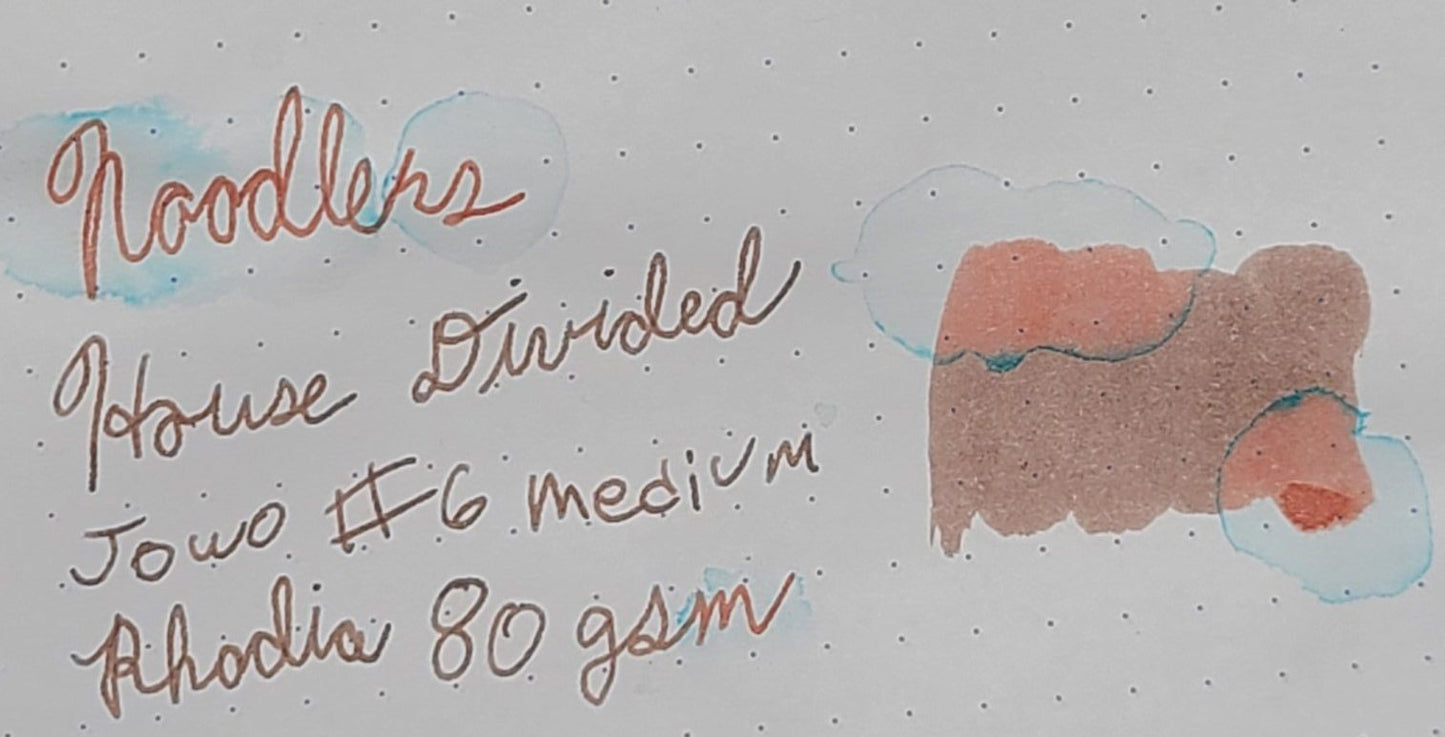 Noodlers
House Divided
Jowo #6 medium
Rhodia 80 gsm